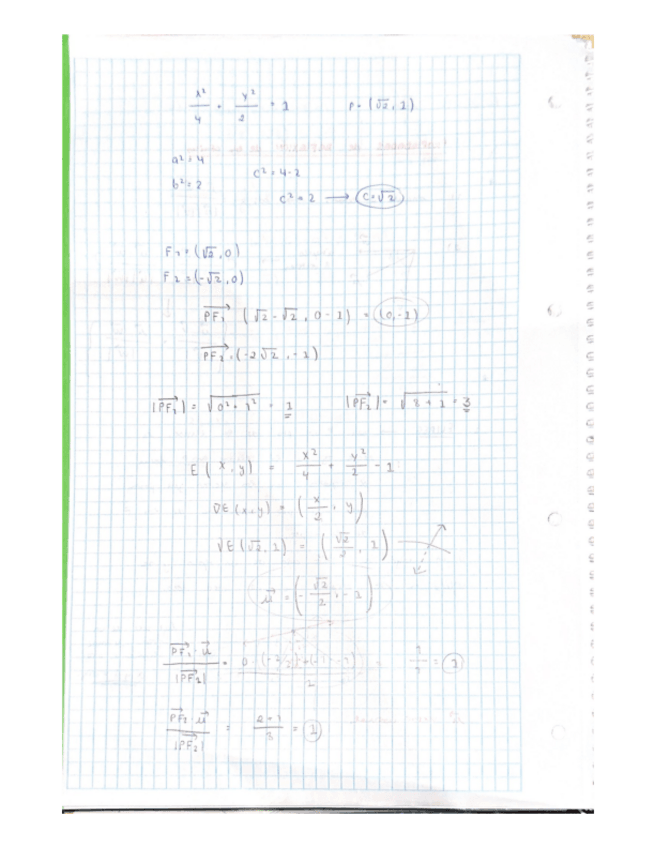 x²/4 + y²/2 = 1 P = (√2, 1)
a² = 4
b² = 2 c² = 4-2
c² = 2 → c=√2
F₁ = (√2, 0)
F₂ = (-√2, 0)
PF₁ (√2-√2, 0-1) = (0,-1)
PF₂ = (-2√2, -1)
|PF₁| = √(0²+1²) = 1 |PF₂| = √(8+1) = 3
E(x,y) = x²/4 + y²/2 - 1
∇E(x,y) = (x/2, y)
∇E(√2,1) = (√2/2, 1)
u = (-√2/2, -1)
PF₁·u / |PF₁| = = 1
PF₂·u / |PF₂| = 2+1 / 3 = 1